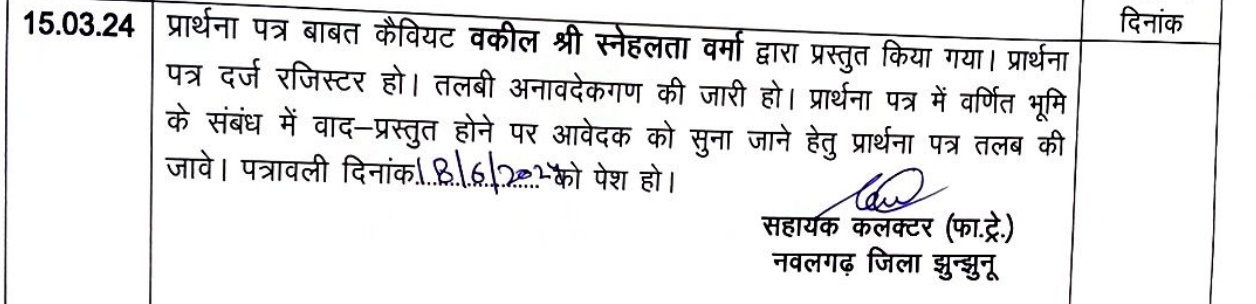 15.03.24 प्रार्थना पत्र बाबत कैवियट वकील श्री स्नेहलता वर्मा द्वारा प्रस्तुत किया गया। प्रार्थना दिनांक
पत्र दर्ज रजिस्टर हो। तलबी अनावदेकगण की जारी हो। प्रार्थना पत्र में वर्णित भूमि
के संबंध में वाद–प्रस्तुत होने पर आवेदक को सुना जाने हेतु प्रार्थना पत्र तलब की
जावे। पत्रावली दिनांक 18/6/2024 को पेश हो।
सहायक कलक्टर (फा.ट्रे.)
नवलगढ़ जिला झुन्झुनू